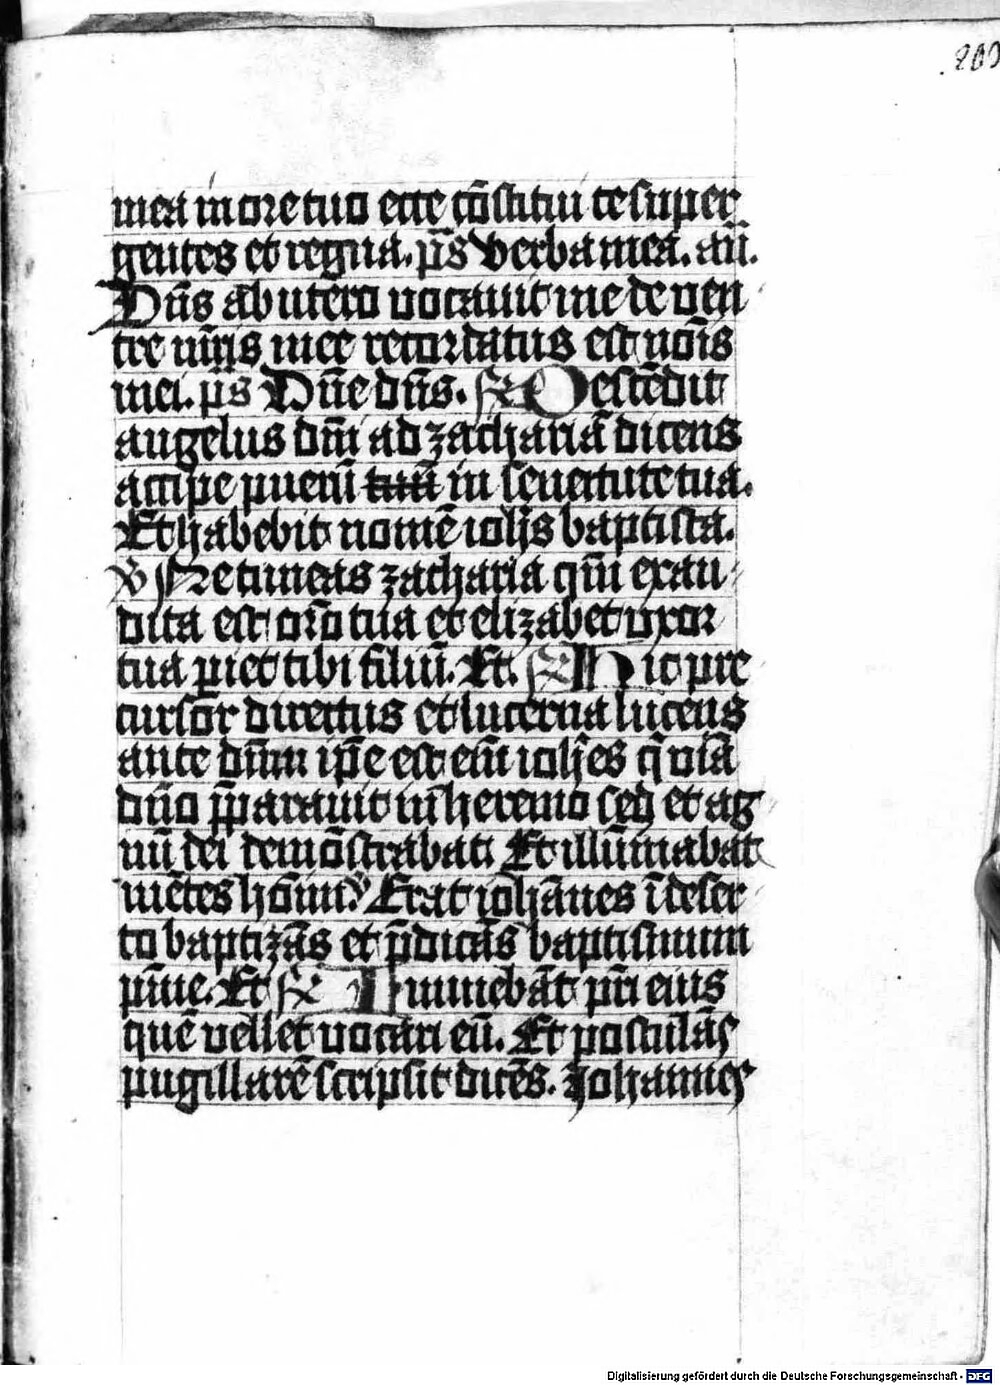 200
mea in ore tuo ecce cōstitui te super
gentes et regna. p̄s Verba mea. an̄.
Dn̄s ab utero vocauit me de ven
tre mr̄is mee recordatus est noīs
mei. p̄s Dn̄e dn̄s. R Descēdit
angelus dn̄i ad zachariā dicens
accipe puerū in senectute tua.
Et habebit nomē ioh̄s baptista.
V Ne timeas zacharia qm̄ exau
dita est or̄o tua et elizabet vxor
tua pariet tibi filiū. Et. R Hic pre
cursor directus et lucerna lucens
ante dn̄m ip̄e est em̄ ioh̄es q viā
dn̄o p̄parauit in heremo sed et ag
nū dei demōstrabat Et illūinabat
mētes hoīm. V Erat ioh̄anes ī deser
to baptizās et p̄dicās baptismum
pn̄ie. Et R Innuebāt pr̄i eius
quē vellet vocari eū. Et postulās
pugillarē scripsit dicēs. Johannes
Digitalisierung gefördert durch die Deutsche Forschungsgemeinschaft - DFG